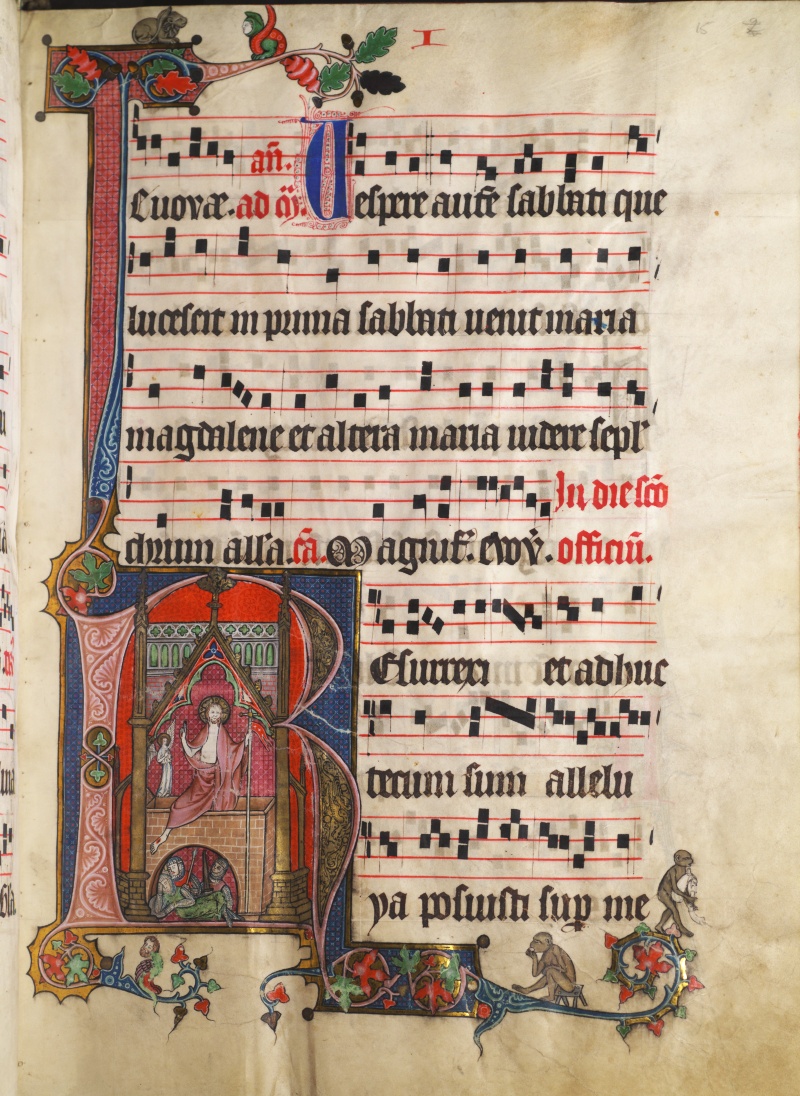 I
15
Euouae. ad m̄. an̄. Uespere aut̄e sabbati que
lucescit in prima sabbati uenit maria
magdalene et altera maria uidere sepl̄
chrum all'a. ca͞. Magnif̄. Evov̄. In die sc̄o officiū.
Resurrexi et adhuc
tecum sum allelu
ya posuisti sup̱ me